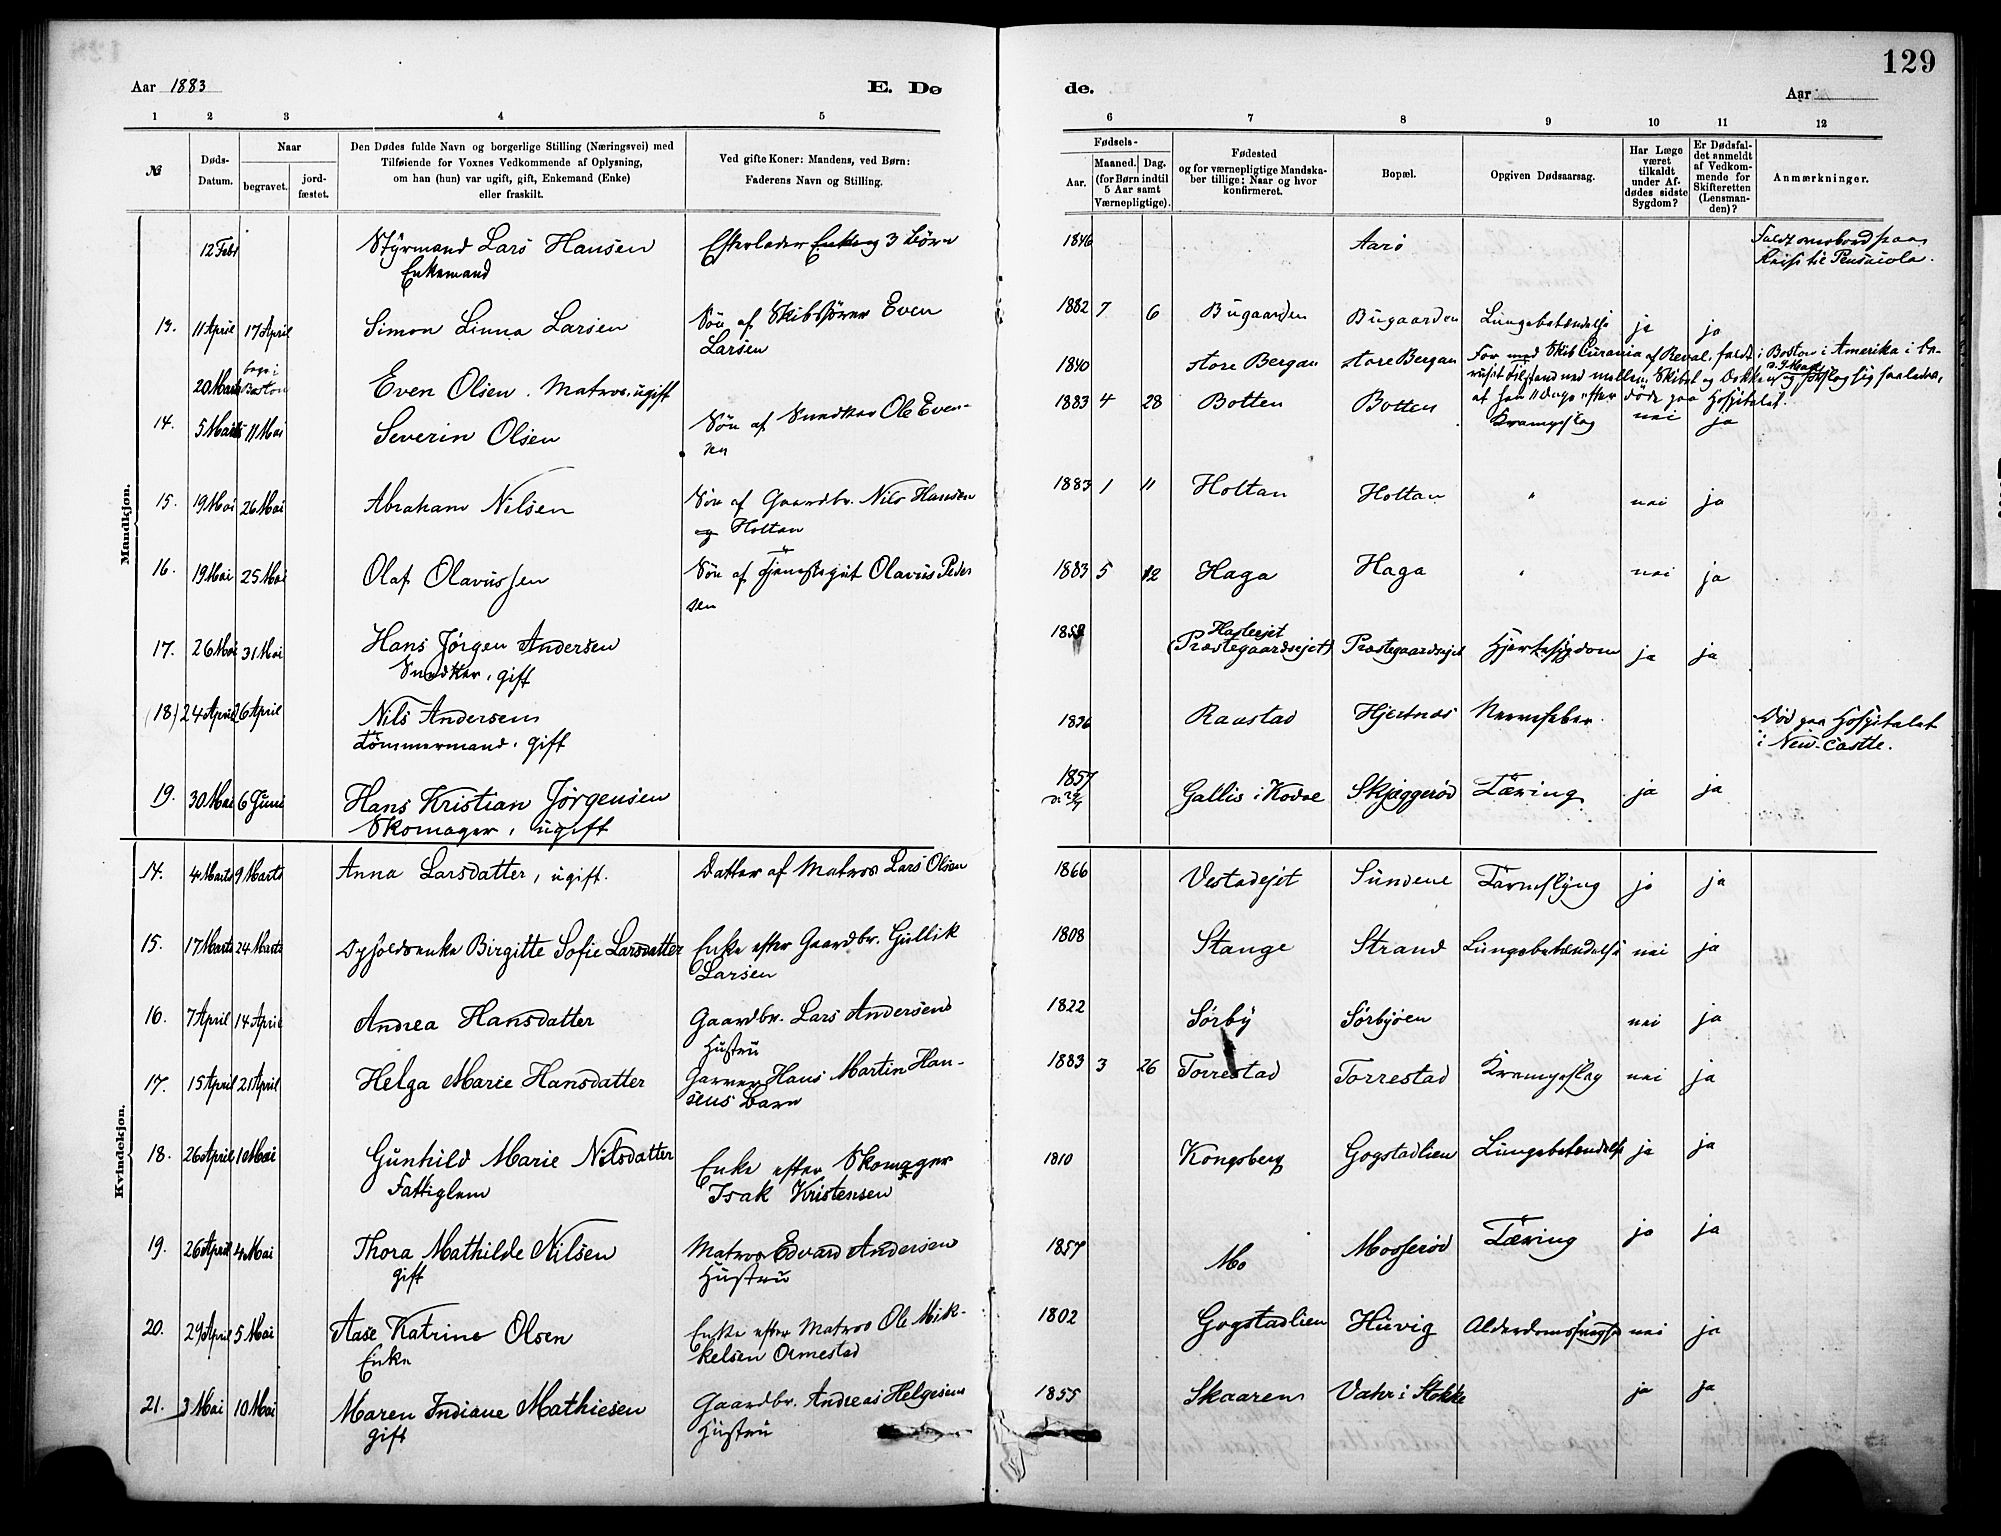 129
Aar 1883
E. Dø
de.
Aar
1 2 3 4 5 6 7 8 9 10 11 12
№
Døds-
Datum.
Naar
begravet.
jord-
fæstet.
Den Dødes fulde Navn og borgerlige Stilling (Næringsvei) med
Tilføiende for Voxnes Vedkommende af Oplysning,
om han (hun) var ugift, gift, Enkemand (Enke)
eller fraskilt.
Ved gifte Koner: Mandens, ved Børn:
Faderens Navn og Stilling.
Fødsels-
Aar.
Maaned. Dag.
(for Børn indtil
5 Aar samt
Værnepligtige).
Fødested
og for værnepligtige Mandska-
ber tillige: Naar og hvor
konfirmeret.
Bopæl.
Opgiven Dødsaarsag.
Har Læge
været
tilkaldt
under Af-
dødes sidste
Sygdom?
Er Dødsfal-
det anmeldt
af Vedkom-
mende for
Skifteretten
(Lensman-
den)?
Anmærkninger.
Mandkjøn.
12 Febr Styrmand Lars Hansen Efterlader Enke og 3 Børn 1846 Aarø Faldt overbord paa
Enkemand Reise til Pensacola.
13. 11 April 17 April Simon Linna Larsen Søn af Skibsfører Even 1882 7 6 Bugaarden Bugaarden Lungebetændelse ja ja
Larsen
20 Marts begr. i Boston Even Olsen. Matros. ugift 1840 Store Bergan Store Bergan For med Skib Curania af Reval, faldt i Boston i Amerika i be-
ruset Tilstand ned mellem Skibet og Dokken og slog sig saaledes,
at han 11 Dage efter døde paa Hospitalet.
14. 5 Mai 11 Mai Severin Olsen Søn af Snedker Ole Even- 1883 4 28 Botten Botten Krampeslag nei ja
sen
15. 19 Mai 26 Mai Abraham Nilsen Søn af Gaardbr. Nils Hansen 1883 1 11 Holtan Holtan " nei ja
og Holtan
16. 19 Mai 25 Mai Olaf Olavussen Søn af Tjenestegut Olavus Peder 1883 5 12 Haga Haga " nei ja
sen
17. 26 Mai 31 Mai Hans Jørgen Andersen (Præstegaardsejet) Præstegaardsejet Hjertesygdom ja ja
Snedker, gift
(18) 24 April 26 April Nils Andersen 1836 Raastad Hjertnæs Nervefeber. Død paa Hospitalet
Tømmermand. gift i New-Castle.
19. 30 Mai 6 Juni Hans Kristian Jørgensen 1857 Gallis i Kodal Skjæggerød Tæring ja ja
Skomager, ugift
Kvindekjøn.
14. 4 Marts 9 Marts Anna Larsdatter, ugift. Datter af Matros Lars Olsen 1866 Vestadejet Sundene Tarmslyng ja ja
15. 17 Marts 24 Marts Opholdsenke Birgitte Sofie Larsdatter Enke efter Gaardbr. Gullik 1808 Stange Strand Lungebetændelse nei ja
Larsen
16. 7 April 14 April Andrea Hansdatter Gaardbr. Lars Andersens 1822 Sørby Sørbyøen nei ja
Hustru
17. 15 April 21 April Helga Marie Hansdatter Garver Hans Martin Han- 1883 3 26 Torrestad Torrestad Krampeslag nei ja
sens Barn
18. 26 April 10 Mai Gunhild Marie Nilsdatter Enke efter Skomager 1810 Kongsberg Gogstadlien Lungebetændelse ja ja
Fattiglem Isak Kristensen
19. 26 April 4 Mai Thora Mathilde Nilsen Matros Edvard Andersens 1857 Mo Mosserød Tæring ja ja
gift Hustru
20. 29 April 5 Mai Aase Katrine Olsen Enke efter Matros Ole Mik- 1802 Gogstadlien Huvig Alderdomssvaghed nei ja
Enke kelsen Ormestad
21. 3 Mai 10 Mai Maren Indiane Mathiesen Gaardbr. Andreas Helgesens 1855 Skaaren Vahr i Stokke ja ja
gift Hustru